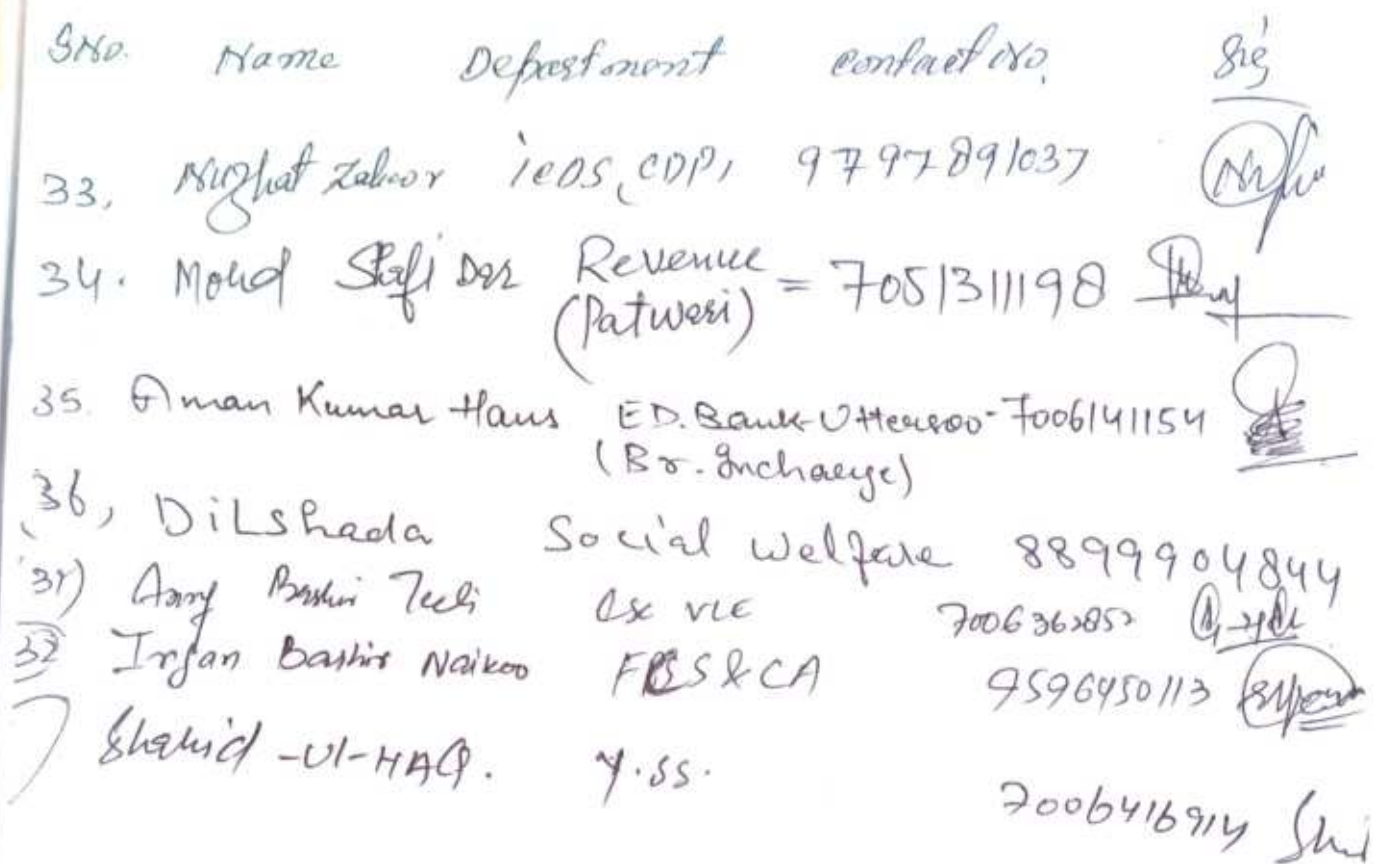 SNo. Name Department contact No. Sig
33, Nuzhat Zahoor icDS, CDP, 9797891037
34. Mohd Shafi Dar Revenue = 7051311198
(Patwari)
35. Aman Kumar Hans ED. Bank-Uttersoo- 7006141154
(Br. Incharge)
36, DiLshada Social welfare 8899904844
37) Bashir Teeli VLE 7006362852
38 Irfan Bashir Naikoo FCS&CA 9596450113
Shahid -Ul-HAQ. Y.SS.
7006416914